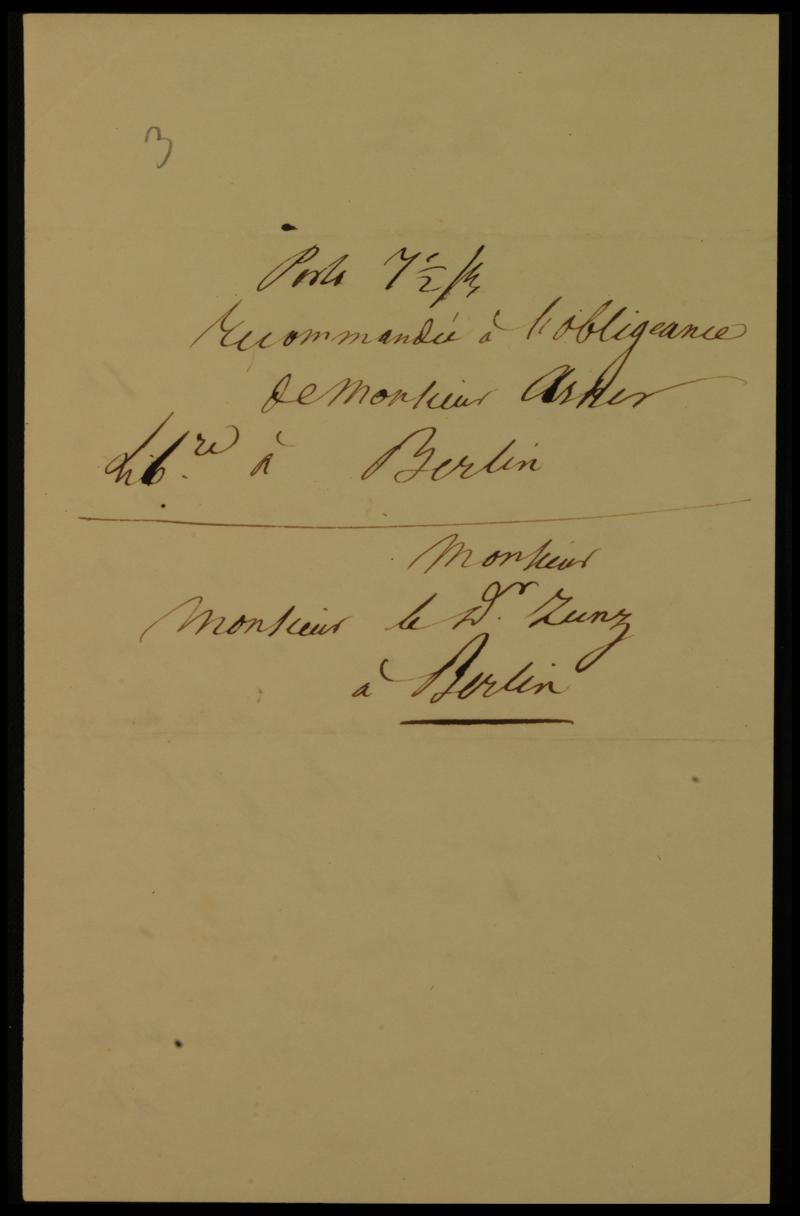 3
Porto 7½
recommandée à l'obligeance
de Monsieur Asher
Lib.re à Berlin
Monsieur
Monsieur le Dr. Zunz
à Berlin